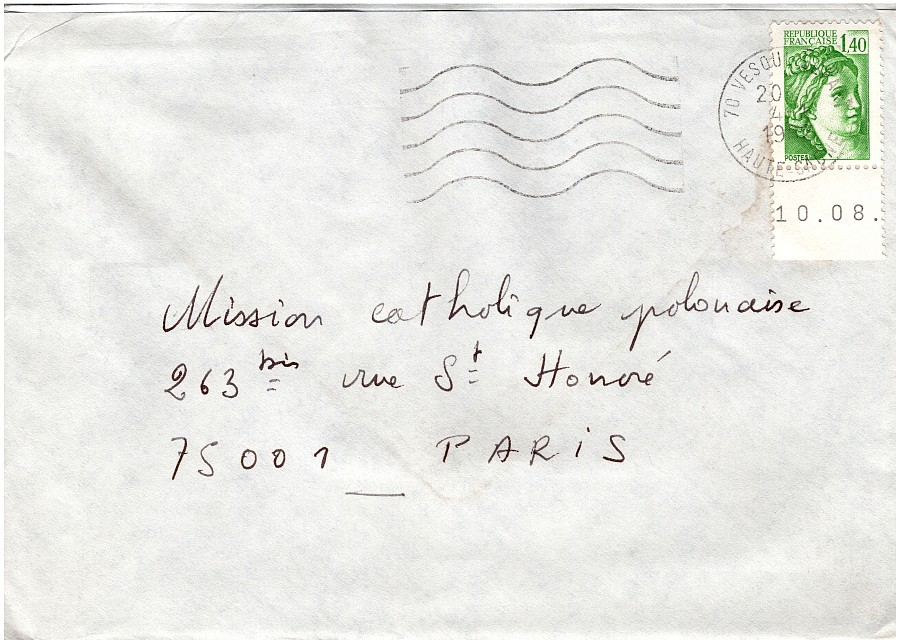 REPUBLIQUE
FRANÇAISE 1,40
70 VESOUL
20
4
19
HAUTE SAONE
POSTES
10.08.
Mission catholique polonaise
263 bis rue St Honoré
75001 PARIS